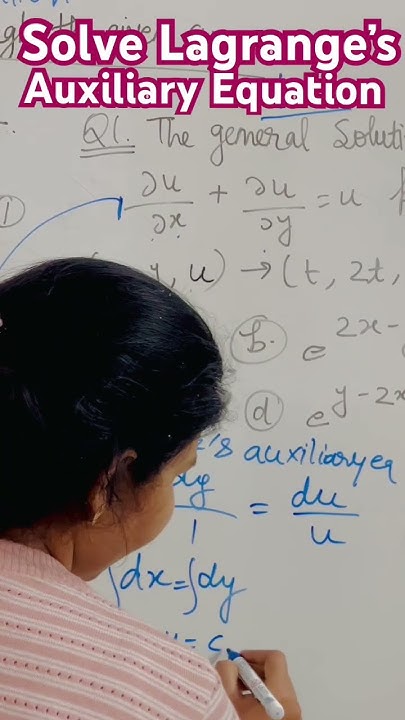 Solve Lagrange's
Auxiliary Equation
Q1. The general Soluti
①
∂u/∂x + ∂u/∂y = u
, u) → (t, 2t,
b. e^{2x-
d e^{y-2x
's auxiliary eq
dy/1 = du/u
∫dx = ∫dy
= c